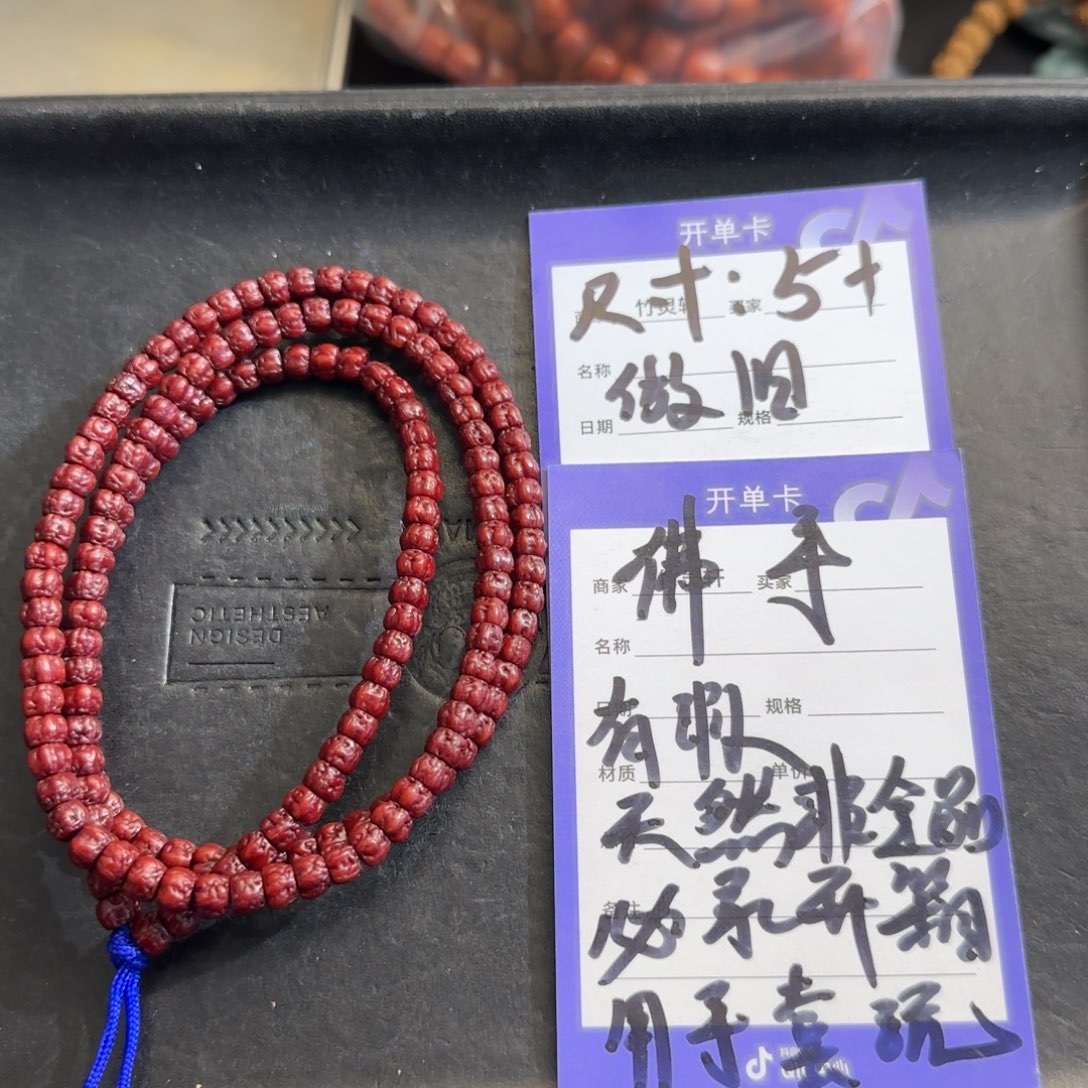 开单卡
竹灵轩 买家
尺寸.5+
名称
做旧
日期 规格
开单卡
商家 轩 买家
佛手
名称
规格
有瑕
材质 单价
天然非全品
必录开箱
备注
用于盘玩
DESIGN
AESTHETIC